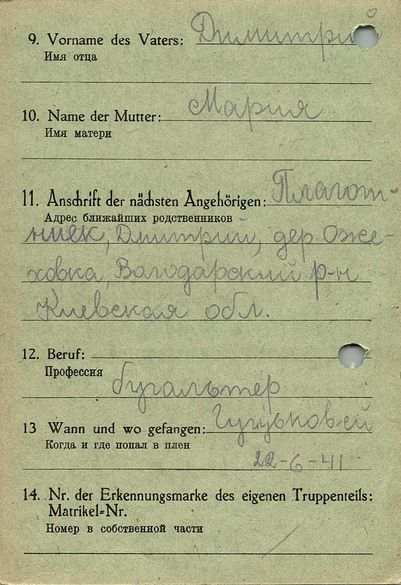 9. Vorname des Vaters: Димитрий
Имя отца
10. Name der Mutter: Мария
Имя матери
11. Anschrift der nächsten Angehörigen: Плагот-
Адрес ближайших родственников
ниек, Дмитрий, дер. Оже-
ховка, Володарский р-н
Киевская обл.
12. Beruf:
Профессия
бугальтер
13 Wann und wo gefangen:
Когда и где попал в плен
22-6-41
14. Nr. der Erkennungsmarke des eigenen Truppenteils:
Matrikel=Nr.
Номер в собственной части